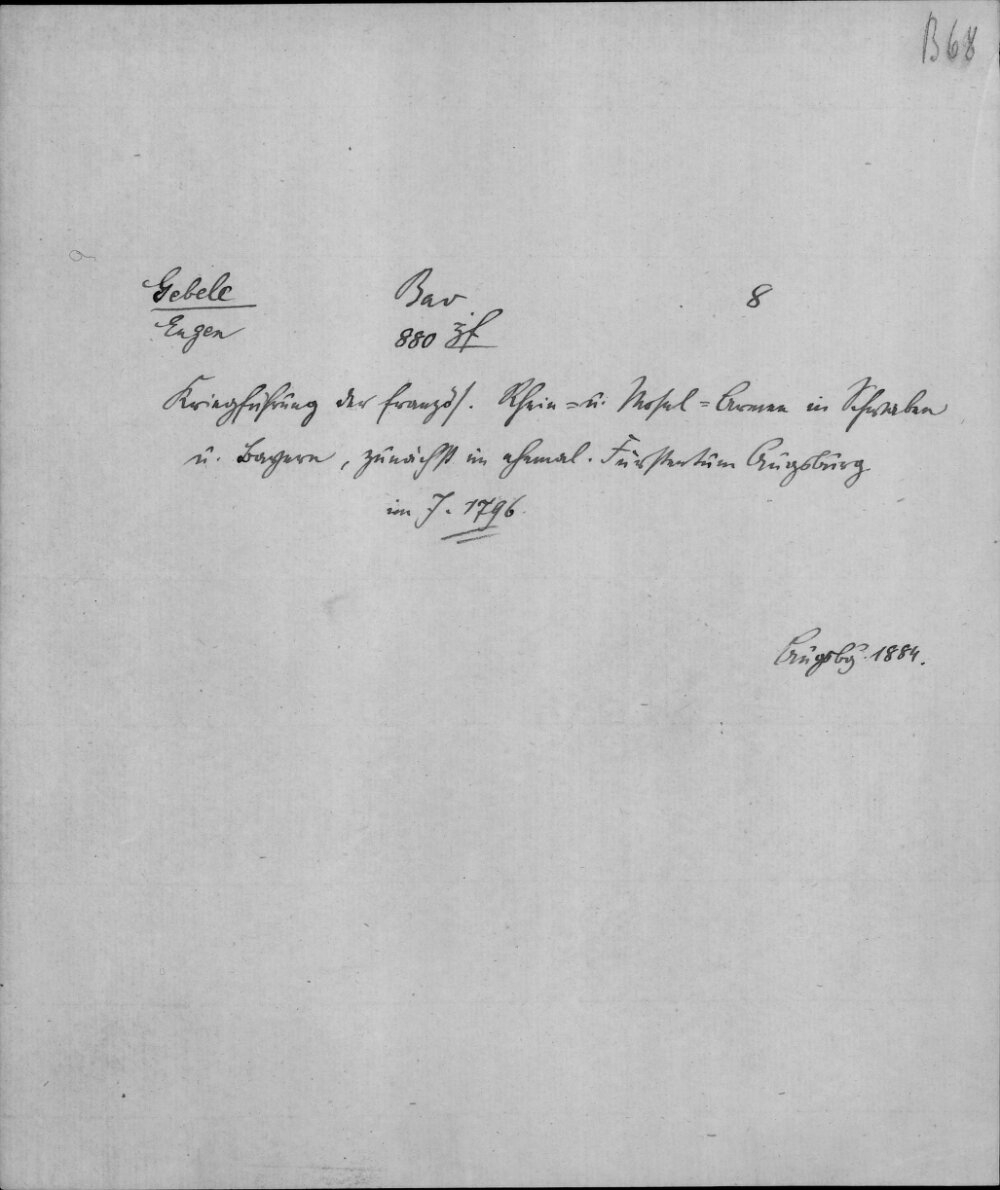 B68
Gebele Bav 8
Eugen 880 zf
Kriegführung der französ. Rhein- u. Mosel-Armee in Schwaben
u. Bayern, zunächst im ehemal. Fürstentum Augsburg
im J. 1796.
Augsbg. 1884.